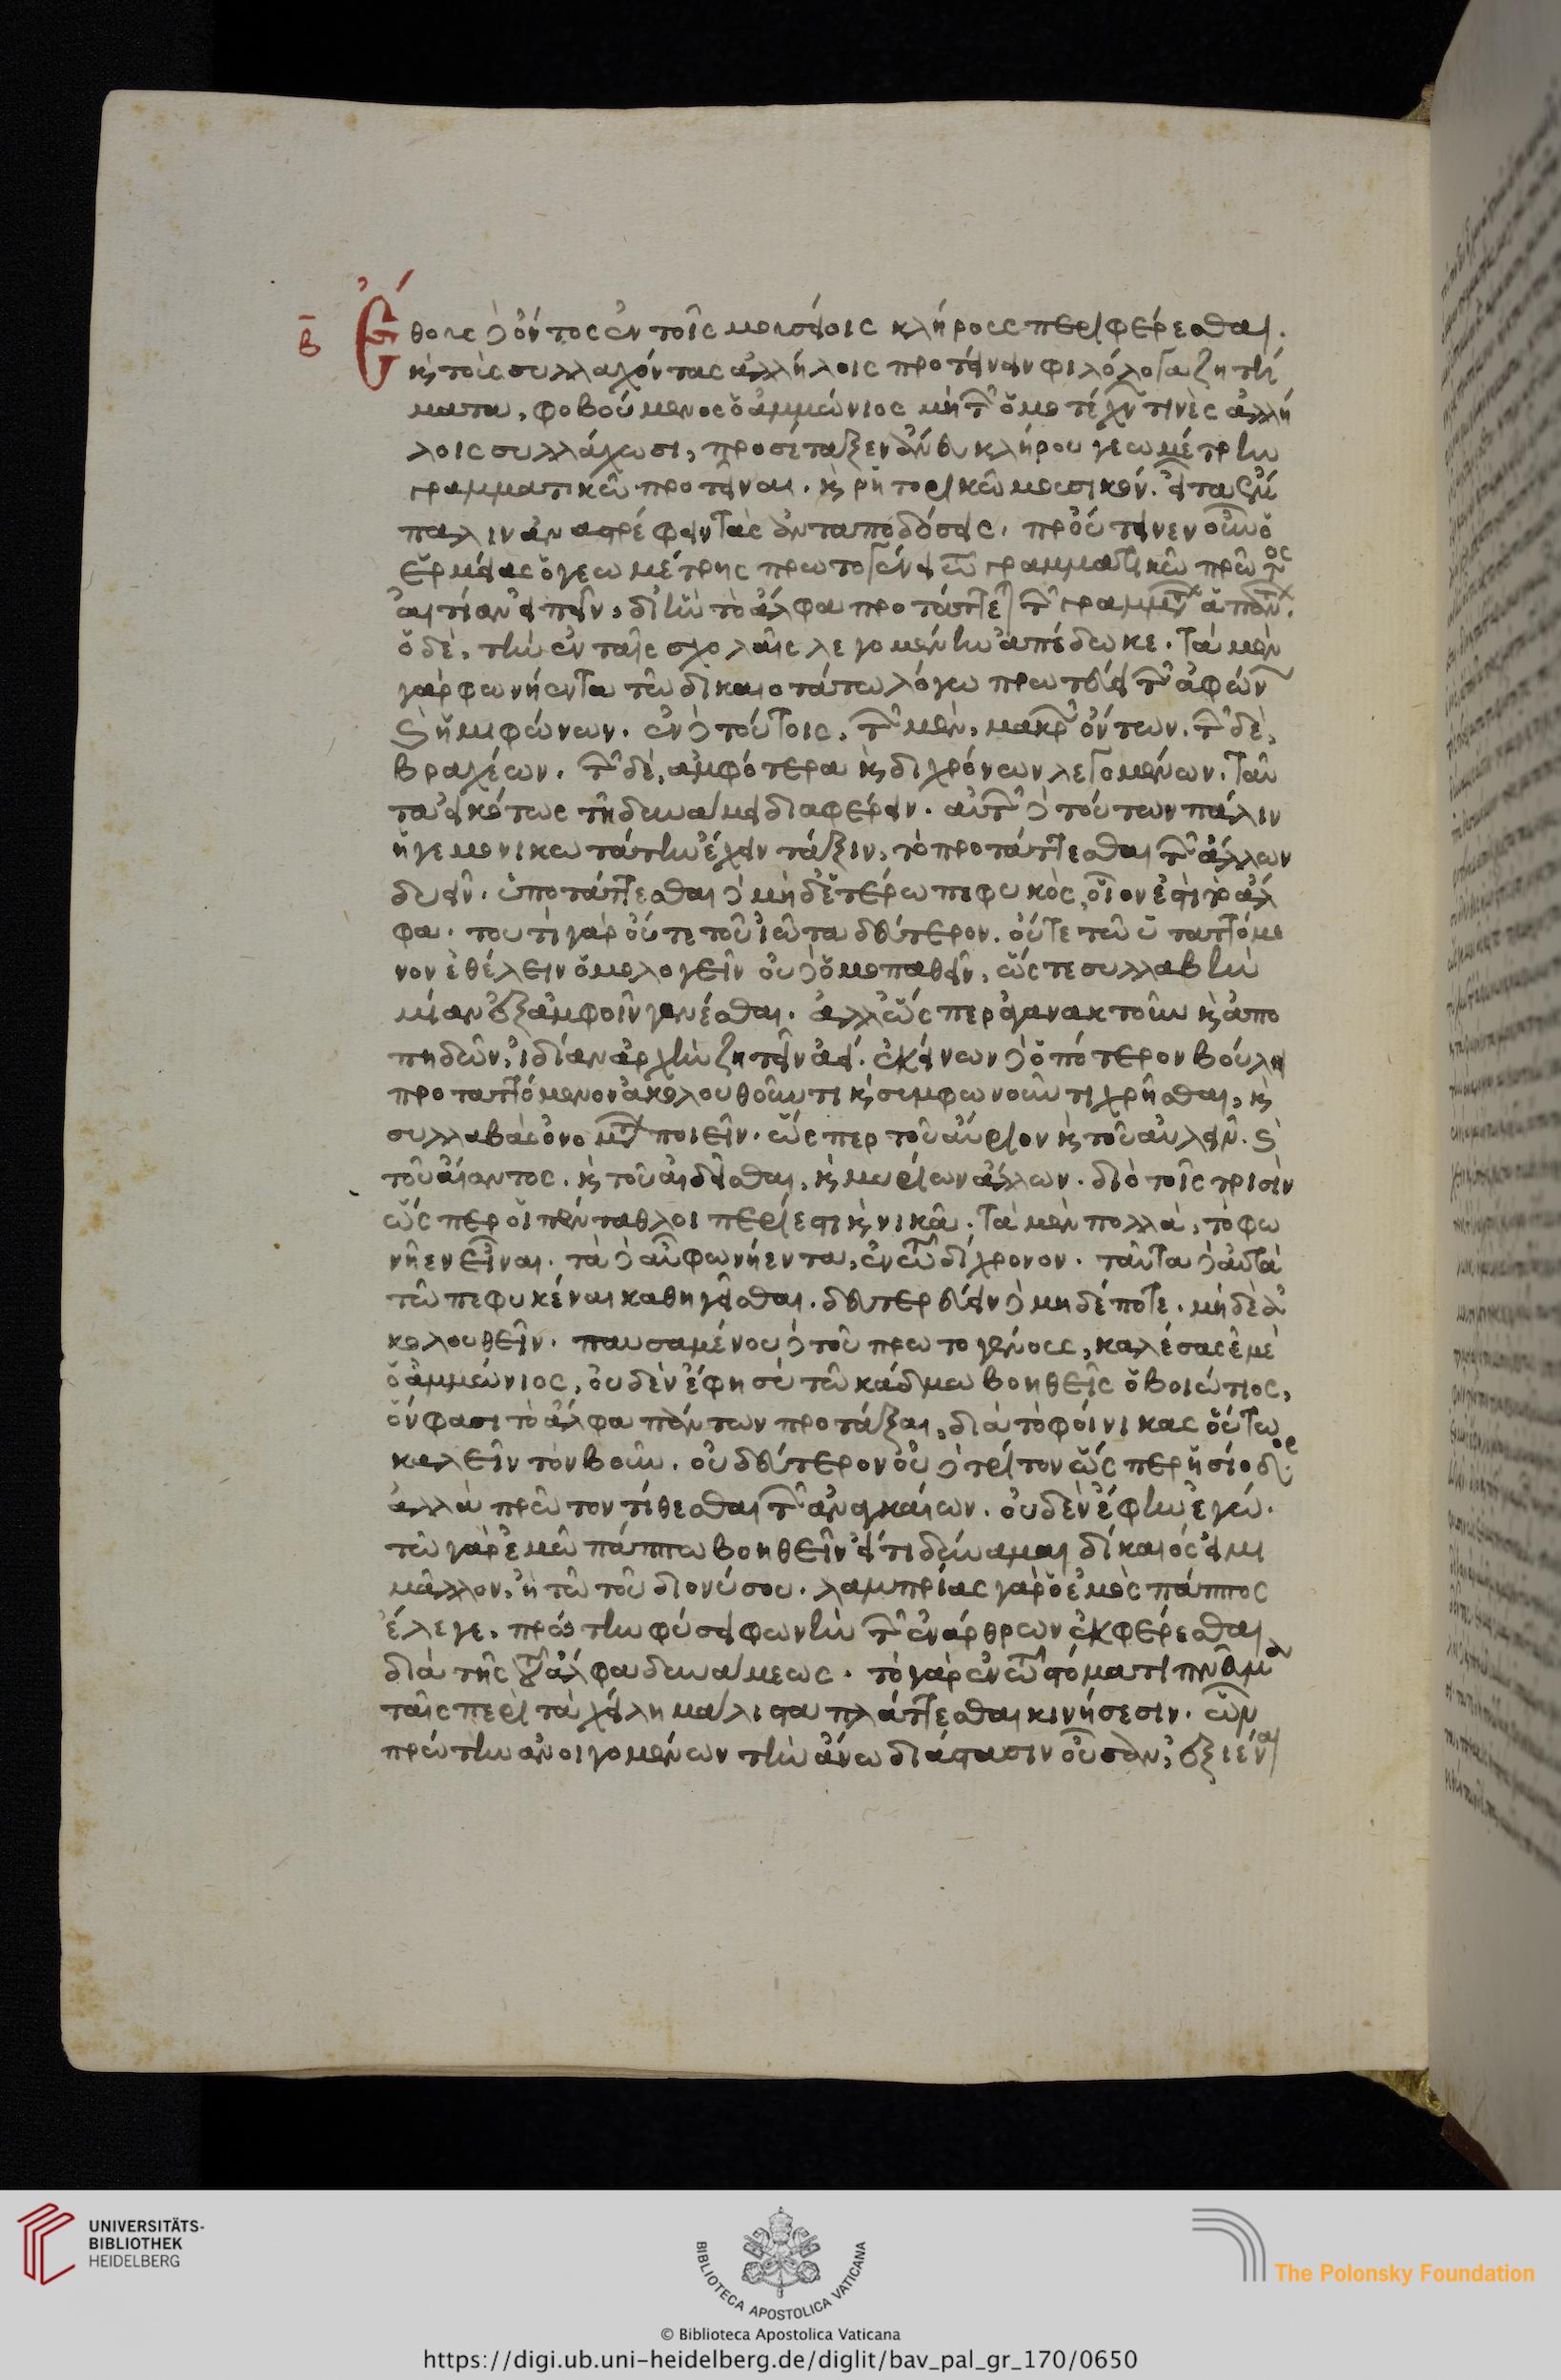 β Ἔθους δ' ὄντος ἐν τοῖς μουσείοις κλήρους περιφέρεσθαι.
καὶ τοὺς συλλαχόντας ἀλλήλοις προτείνειν φιλόλογα ζητή
ματα, φοβούμενος ὁ ἀμμώνιος μὴ τῶν ὁμοτέχνων τινὲς ἀλλή
λοις συλλάχωσι, προσέταξεν ἄνευ κλήρου γεωμέτρην
γραμματικῶ προτεῖναι. καὶ ῥητορικῶ μουσικόν. εἶτα ἔμ
παλιν ἀναστρέφειν τὰς ἀνταποδόσεις. προὔτεινεν οὖν ὁ
ἑρμείας ὁ γεωμέτρης πρωτογένει τῶ γραμματικῶ πρῶτος
αἰτίαν εἰπεῖν, δι' ἣν τὸ ἄλφα προτάττεται τῶν γραμμάτων ἁπάντων.
ὁ δὲ, τὴν ἐν ταῖς σχολαῖς λεγομένην ἀπέδωκε. τὰ μὲν
γὰρ φωνήεντα τῶ δικαιοτάτω λόγω πρωτεύει τῶν ἀφώνων
καὶ ἡμιφώνων. ἐν δὲ τούτοις, τῶν μὲν, μακρῶν ὄντων. τῶν δὲ,
βραχέων. τῶν δὲ, ἀμφότερα καὶ διχρόνων λεγομένων. ταῦ
τα εἰκότως τῆ δυνάμει διαφέρειν. αὐτῶν δὲ τούτων πάλιν
ἡγεμονικωτάτην ἔχειν τάξιν, τὸ προτάττεσθαι τῶν ἄλλων
δυεῖν. ὑποτάττεσθαι δὲ μηδετέρω πεφυκὸς, οἷόν ἐστι τὸ ἄλ
φα. τουτὶ γὰρ οὔτε τοῦ ἰῶτα δεύτερον. οὔτε τοῦ ῦ ταττόμε
νον ἐθέλειν ὁμολογεῖν οὐδ' ὁμοπαθεῖν, ὥστε συλλαβὴν
μίαν ἐξ ἀμφοῖν γενέσθαι. ἀλλ' ὥσπερ ἀγανακτοῦν καὶ ἀπο
πηδῶν, ἰδίαν ἀρχὴν ζητεῖν ἀεί. ἐκείνων δ' ὁπότερον βούλει
προταττόμενον ἀκολουθοῦντι καὶ συμφωνοῦντι χρῆσθαι, καὶ
συλλαβὰς ὀνομάτων ποιεῖν. ὥσπερ τοῦ αὔριον καὶ τοῦ αὐλεῖν. καὶ
τοῦ αἴαντος. καὶ τοῦ αἰδεῖσθαι. καὶ μυρίων ἄλλων. διὸ τοῖς τρισὶν
ὥσπερ οἱ πένταθλοι περίεστι καὶ νικᾶ. τὰ μὲν πολλὰ, τὸ φω
νῆεν εἶναι. τὰ δ' αὖ φωνήεντα, ἐν τῶ δίχρονον. ταῦτα δ' αὐτὰ
τῶ πεφυκέναι καθηγεῖσθαι. δευτερεύειν δὲ μηδέποτε. μηδὲ ἀ
κολουθεῖν. παυσαμένου δὲ τοῦ πρωτογένους, καλέσας ἐμὲ
ὁ ἀμμώνιος, οὐδὲν ἔφη σὺ τῶ κάδμω βοηθεῖς ὁ βοιώτιος,
ὅν φασι τὸ ἄλφα πάντων προτάξαι, διὰ τὸ φοίνικας οὕτω
καλεῖν τὸν βοῦν. οὐ δεύτερον οὐδὲ τρίτον ὥσπερ ἡσίοδος.
ἀλλὰ πρῶτον τίθεσθαι τῶν ἀναγκαίων. οὐδὲν ἔφην ἐγώ.
τῶ γὰρ ἐμῶ πάππω βοηθεῖν εἴ τι δύναμαι δίκαιός εἰμι
μᾶλλον, ἢ τῶ τοῦ διονύσου. λαμπρίας γὰρ ὁ ἐμὸς πάππος
ἔλεγε, πρώτην φύσει φωνὴν τῶν ἐνάρθρων ἐκφέρεσθαι
διὰ τῆς τοῦ ἄλφα δυνάμεως. τὸ γὰρ ἐν τῶ στόματι πνεῦμα
ταῖς περὶ τὰ χείλη μάλιστα πλάττεσθαι κινήσεσιν. ὧν
πρώτην ἀνοιγομένων τὴν ἄνω διάστασιν οὖσαν, ἐξιέναι
UNIVERSITÄTS-
BIBLIOTHEK
HEIDELBERG
BIBLIOTECA APOSTOLICA VATICANA
The Polonsky Foundation
© Biblioteca Apostolica Vaticana
https://digi.ub.uni-heidelberg.de/diglit/bav_pal_gr_170/0650